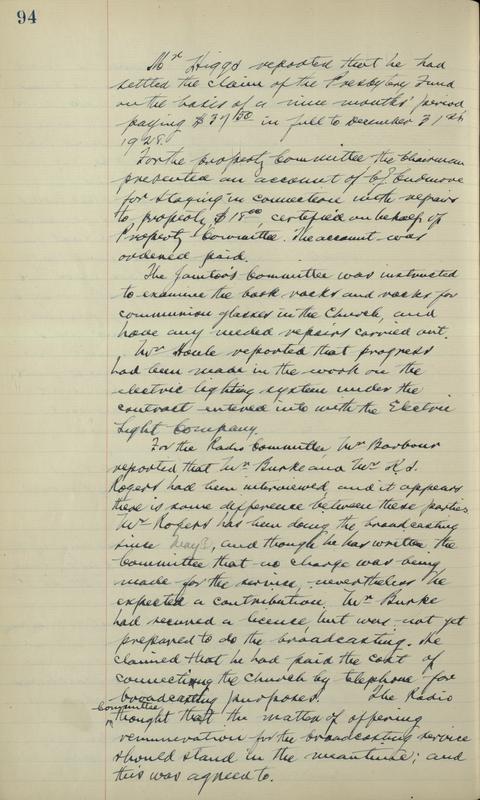 94
Mr Higgs reported that he had
settled the claim of the Presbytery Fund
on the basis of a nine months' period
paying $37.50 in full to December 31st
1928.
For the property Committee the Chairman
presented an account of
for staging in connection with repairs
to property $18.00, certified on behalf of
Property Committee. The account was
ordered paid.
The Janitor's Committee was instructed
to examine the book racks and racks for
communion glasses in the Church, and
have any needed repairs carried out.
Mr Houle reported that progress
had been made in the work on the
electric lighting system under the
contract entered into with the Electric
Light Company.
For the Radio Committee, Mr Barbour
reported that Mr Burke and Mr K.S.
Rogers had been interviewed, and it appears
there is some difference between these parties.
Mr Rogers has been doing the broadcasting
since, and though he has written the
Committee that no charge was being
made for the service, nevertheless he
expected a contribution. Mr Burke
had received a licence, but was not yet
prepared to do the broadcasting. He
claimed that he had paid the cost of
connecting the Church by telephone for
broadcasting purposes. The Radio
Committee
thought that the matter of offering
remuneration for the broadcasting service
should stand in the meantime; and
this was agreed to.